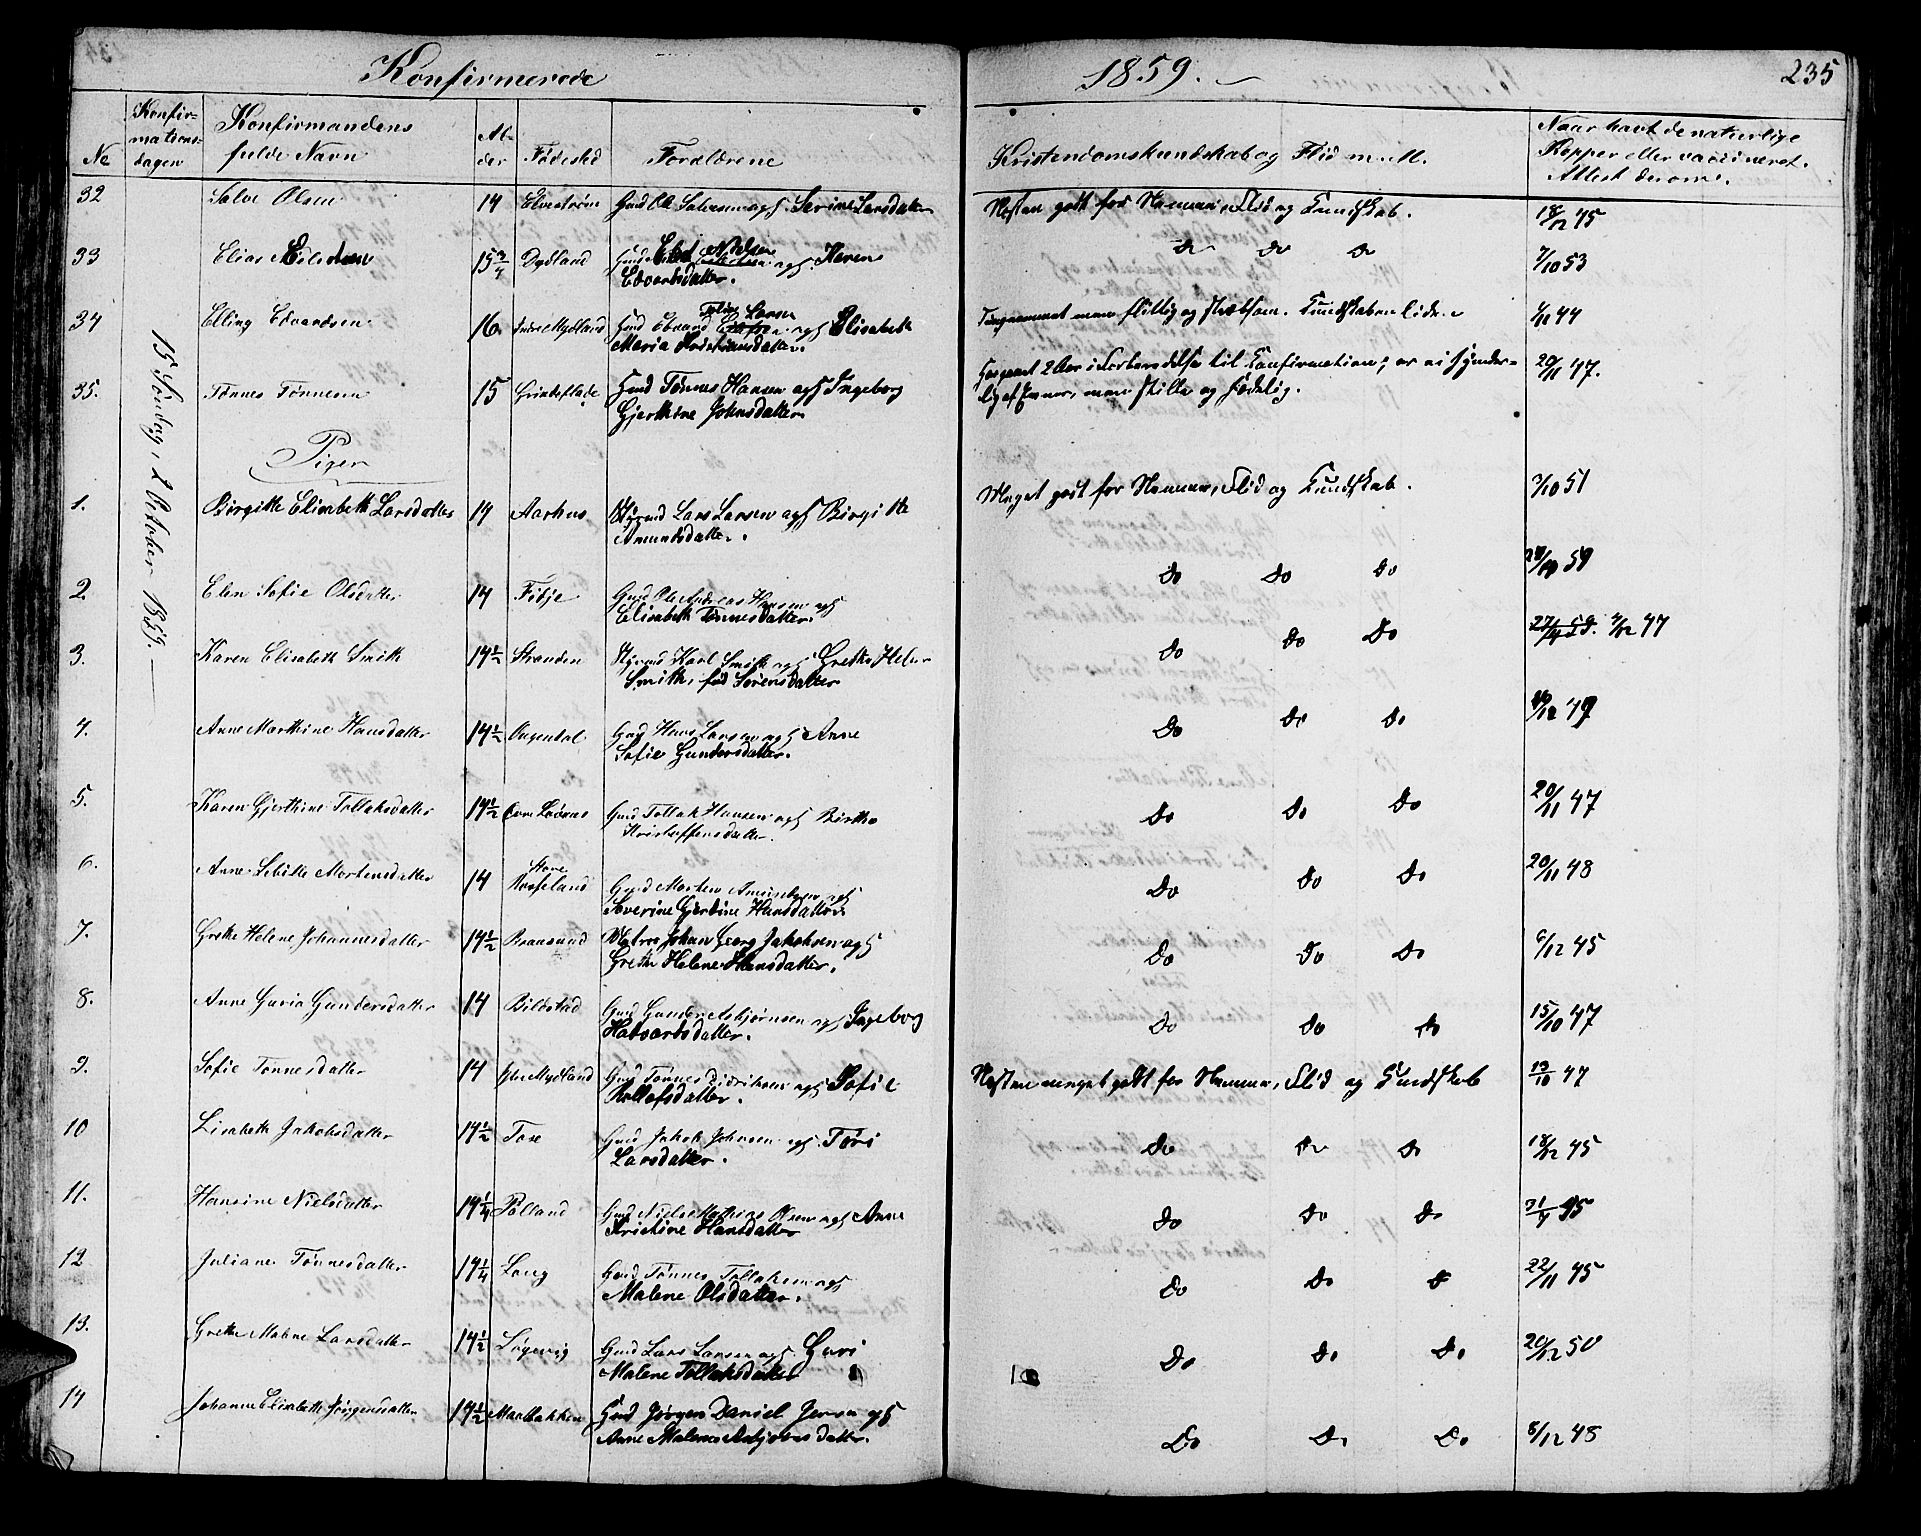 Konfirmerede 1859. 235
No
Konfir-
mations-
dagen
Konfirmandens
fulde Navn
Al-
der
Fødested
Forældrene
Kristendomskundskab og Flid m. M.
Naar havt de naturlige
Kopper eller vaccineret.
Attest derom.
15 Søndag, 2 October 1859.
32 Salve Olsen 14 Gmd Ole Salvesen og h. Serine Larsdatter Næsten godt for Nemme, Flid og Kundskab. 18/12 45
33 Elias 15 3/4 Dydland Gmd og h. Karen Do Do Do 7/10 53
Edvardsdatter.
34 Elling Edvardsen 16 Indre Mydland Gmd Edvard og h. Elisabeth Tungnemmet men flittig og stræbsom. Kundskaben liden 1/11 44
Maria Kristiansdatter.
35. Tønnes Tønnesen 15 Grindeflade Gmd Tønnes Hansen og h. Ingeborg 2 Aar i Forberedelse til Konfirmation; er ei synder- 20/11 47.
Gjerthine Johnsdatter lig af Evner, men stille og sædelig.
Piger
1. Birgitte Elisabeth Larsdatter 14 Aarhus Lars Larsen og h. Birgitte Meget godt for Nemme, Flid og Kundskab. 7/10 51
Amundsdatter.
2. Elen Sofie Olsdatter 14 Fidje Gmd Ole Andreas Hansen og h Do Do Do 59
Elisabeth Tønnesdatter.
3. Karen Elisabeth Smith 14 1/2 Stranden Karl Smith og h. Grethe Helene Do Do Do 47
Smith, fød Sørensdatter
4. Anne Marthine Hansdatter 14 1/2 Aagendal Gmd Hans Larsen og h. Anne Do Do Do 49
Sofie Gundersdatter.
5. Karen Gjerthine Tollaksdatter 14 1/2 Gmd Tollak Hansen og h Birthe Do Do Do 20/11 47
Kristoffersdatter.
6. Anne Sebille Mortensdatter 14 Store
Rosseland Gmd Morten Amundsen og h Do Do Do 20/11 48
Severine Gjertine Hansdatter
7. Grethe Helene Johannesdatter 14 1/2 Rransund Matros Johan Georg Jakobsen og h Do Do Do 6/12 45
Grethe Helene Hansdatter.
8. Anne Guria Gundersdatter 14 Bilestad Gmd Gunder Asbjørnsen og h Ingeborg Do Do Do 15/10 47
Havaardsdatter.
9. Sofie Tønnesdatter 14 Ytre Mydland Gmd Tønnes Didriksen og h Sofie Næsten meget godt for Nemme, Flid og Kundskab 13/10 47
Rollofsdatter.
10 Lisabeth Jakobsdatter 14 1/2 Tose Gmd Jakob Johnsen og h Tøri Do Do Do 18/12 45
Larsdatter.
11. Hansine Nielsdatter 14 1/4 Pølland Gmd Niels Mathias Olsen og h Anne Do Do Do
Kristine Hansdatter
12 Juliane Tønnesdatter 14 1/4 Laug Gmd Tønnes Tollaksen og h Do Do Do 22/11 45
Malene Olsdatter.
13. Grethe Malene Larsdatter 14 1/2 Løgevig Gmd Lars Larsen og h. Guri Do Do Do 20/12 50
Malene Tollaksdatter
14 Johanne Elisabeth Jørgensdatter 14 1/2 Gmd Jørgen Daniel Jensen og h Do Do Do 8/12 48
Anne Malene Asbjørnsdatter.